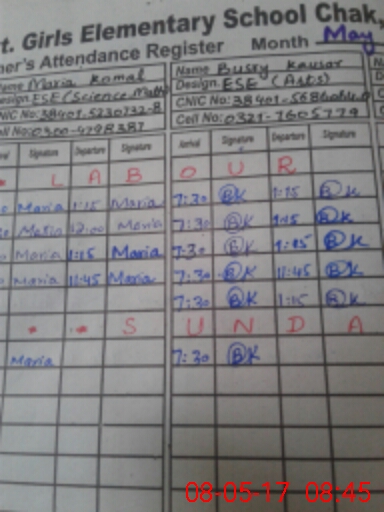 t. Girls Elementary School Chak,
ner's Attendance Register Month May
Name Maria Komal Name Bushy Kausar
Design. ESE (Science Math) Design. ESE (Arts)
CNIC No: 38401-5230732-8 CNIC No: 38401-
Cell No: 0300-4298387 Cell No: 0321-7605779
Signature Departure Signature Arrival Signature Departure Signature
* L A B O U R
Maria 1:15 Maria 7:30 BK 1:15 BK
Maria 12:00 Maria 7:30 BK 1:15 BK
Maria 1:15 Maria 7:30 BK 1:15 BK
Maria 11:45 Maria 7:30 BK 11:45 BK
7:30 BK 1:15 BK
* * S U N D A
Maria 7:30 BK
08-05-17 08:45